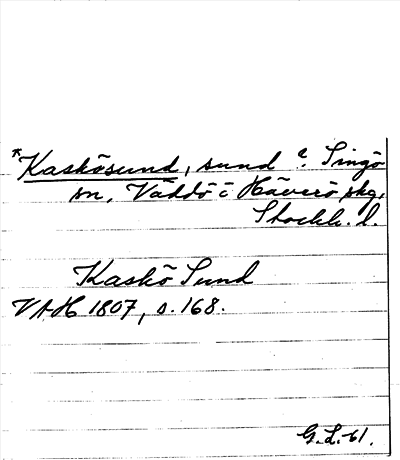 *Kaskösund, sund i Singö
sn, Väddö o Häverö skg,
Stockh. l.
Kaskö Sund
VAH 1807, s. 168.
G.L. 61.